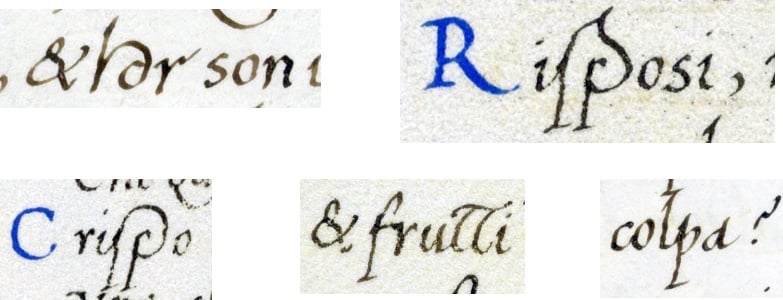 , & hor son
Risposi,
Crispo
& frutti
colpa?